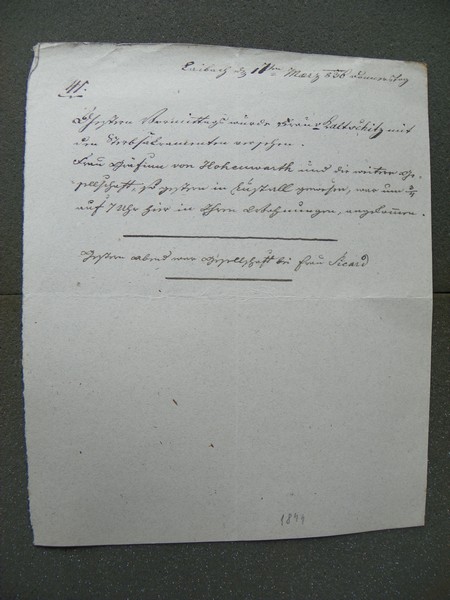 Laibach den 10ten März 836 Donnerstag
41.
Gestern Vormittags wurde Frau v Kaltschitz mit
den Sterbsakramenten versehen.
Frau Gräfinn von Hohenwarth und die weitere Ge-
sellschaft, so gestern in gewesen, war um 3/4
auf 7 Uhr hier in Ihren Wohnungen, angekommen.
Gestern Abend war Gesellschaft bei Frau Sicard
1844